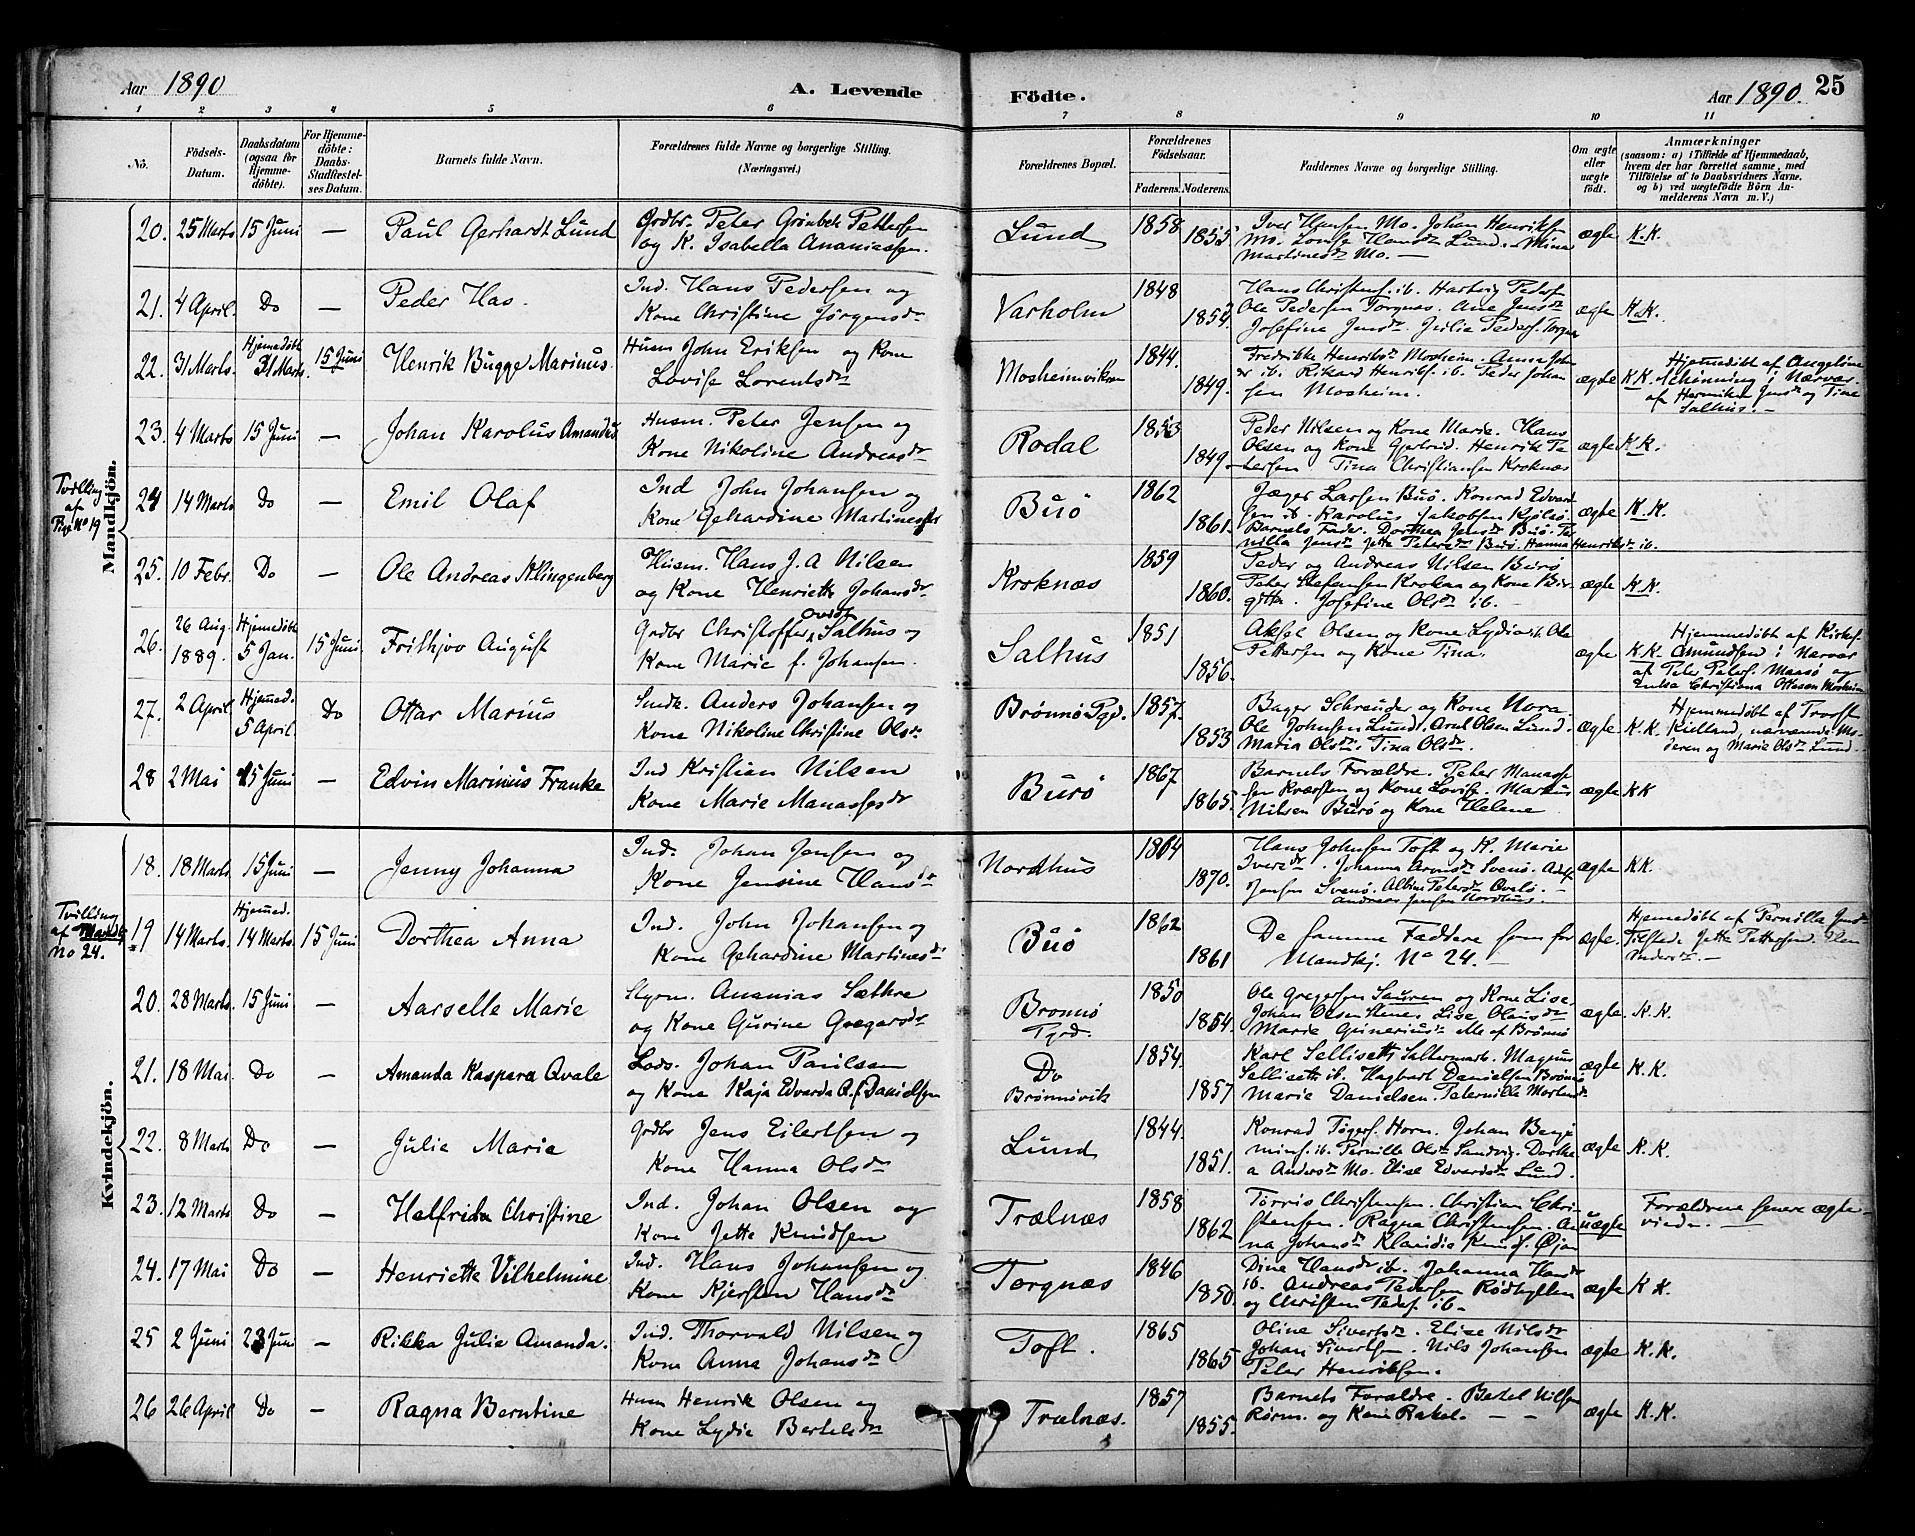 Aar 1890 A. Levende Födte. Aar 1890. 25
1 2 3 4 5 6 7 8 9 10 11
No. Födsels-Datum. Daabsdatum (ogsaa for Hjemme-döbte). For Hjemme-döbte: Daabs-Stadfæstel-ses Datum. Barnets fulde Navn. Forældrenes fulde Navne og borgerlige Stilling. (Næringsvei.) Forældrenes Bopæl. Forældrenes Födselsaar. Faderens. Moderens. Faddernes Navne og borgerlige Stilling. Om ægte eller uægte födt. Anmærkninger
(saasom: a) i Tilfælde af Hjemmedaab, hvem der har forrettet samme, med Tilföielse af to Daabsvidners Navne, og b) ved uægtefödte Börn Anmelderens Navn m. V.)
Mandkjön.
20. 25 Marts 15 Juni — Paul Gerhardt Lund Grdbr. Peter Grönbek Pettersen og K. Isabella Ananiassen. Lund 1858 1855 Iver Hansen Mo. Johan Henriksen Mo. Lovise Hansdr Lund. Mina Martinesdr Mo. — ægte K.K.
21. 4 April. Do — Peder Has. Ind. Hans Pedersen og Kone Christine Jørgensdr Varholm 1848 1854. Hans Christens. ib. Hartvig Petersen Ole Pedersen Torgnes. Ane Jensdr Josefine Jensdr. Julie Peders. Torgnes ægte K.K.
22. 31 Marts. Hjemmedöbt 31 Marts. 15 Juni Henrik Bugge Marinus. Husm John Eriksen og Kone Lovise Lorentsdr Mosheimviken 1844. 1849. Fredrikke Henriksdr Mosheim. Anna John ib. Rikard Henriks. ib. Peder Johansen Mosheim. ægte K.K. Hjemmedöbt af Schönning i Nærvær af Jensdr og Tine Salhus. —
23. 4 Marts 15 Juni — Johan Karolus Amandus Husm. Peter Jensen og Kone Nikoline Andreasdr Rodal 1853 1849. Peder Nilsen og Kone Marie. Hans Olsen og Kone Gjertrud. Henrik Petersen Tina Christiansen Kroknæs ægte K.K.
Tvilling af Pige No 19
24 14 Marts Do — Emil Olaf Ind John Johansen og Kone Gehardine Martinesdr Buö 1862 1861. Jæger Larsen Buö. Konrad Edvardsen ib. Karolus Jakobsen Barnets Fader. Dorthea Jensdr Buö. Pernilla Jensdr Jette Petersdr Buö. Hanna Henriksdr ib. ægte K.K.
25. 10 Febr. Do — Ole Andreas Klingenberg Husm. Hans J. A Nilsen og Kone Henriette Johansdr Kroknæs 1859 1860. Peder og Andreas Nilsen Burö Peter Stefensen Kroknæs og Kone Birgitta. Josefine Olsdr ib. — ægte K.K.
26. 26 Aug. 1889. Hjemmedöbt 5 Jan. 15 Juni Frithjov August Grdbr Christoffer Ovidt Salhus og Kone Marie f. Johansen. Salhus 1851 1856. Aksel Olsen og Kone Lydia ib. Ole Pettersen og Kone Tina. ægte K.K. Hjemmedöbt af Kirkes. Amundsen i Nærvær af Peter Peters. Maasö og Enke Christiana Ottesen Mosheim
27. 2 April. Hjemmed. 5 April. Do Ottar Marius Smdk. Anders Johansen og Kone Nikoline Christine Olsdr Brönnö Pgd. 1857. 1853 Bager Schreuder og Kone Nora. Ole Johnsen Lund. Arnt Olsen Lund. Maria Olsdr. Tina Olsdr ægte K.K. Hjemmedöbt af Kielland, nærværende Moderen og Marie Olsdr Lund. —
28 2 Mai 15 Juni — Edvin Marinius Franke Ind Kristian Nilsen Kone Marie Manassesdr Burö 1867. 1865. Barnets Forældre. Peter Manassesen og Kone Lovise. Markus Nilsen Burö og Kone Helene ægte KK
Kvindekjön.
18. 18 Marts. 15 Juni — Jenny Johanna Ind. Johan Jensen og Kone Jensine Hansdr Nordhus 1864 1870. Hans Johnsen Toft og K. Marie Iversdr. Johanna Svenö. Jensen Svenö. Albine Petersdr Andreas Jensen Nordhus. ægte KK.
Tvilling af Mandkj No 24.
19 14 Marts. Hjemmed. 14 Marts. 15 Juni Dorthea Anna Ind. John Johansen og Kone Gehardine Martinesdr Buö 1862 1861 De samme Faddere som for Mandkj. No 24. — ægte. Hjemmedöbt af Pernilla Jensdr Tilstede Jette Pettersen. —
20. 28 Marts. 15 Juni — Aarselle Marie Styrm. Ananias Sæthre og Kone Gurine Gregersdr Bronnö Pgd. 1850 1854. Ole Gregersen Sauren og Kone Lise. Johan Olsen Lise Olausdr Marie Gunariusdr Alle af Brönnö ægte. K.K.
21. 18 Mai. Do — Amanda Kaspara Qvale Lods. Johan Paulsen og Kone Kaja Edvarda Q. f. Danielsen Do Brönnövik 1854. 1857 Karl Salternæs. Magnus Selliseth ib. Hagbart Danielsen Brönnö Marie Danielsen. Peternille ægte K.K.
22. 8 Marts Do — Julie Marie Grdbr Jens Eilertsen og Kone Hanna Olsdr Lund 1844. 1851. Konrad Tögers. Horn. Johan Benjaminsen ib. Pernille Olsdr Sandvig. Dorthea Andersdr Mo. Elise Edvardsdr Lund. ægte K.K.
23. 12 Marts Do — Helfrida Christine Ind. Johan Olsen og Kone Jette Knudsen Trælnæs 1858 1862 Törris Christensen. Christian Christensen. Ragna Christensen. Anna Johansdr Klaudia Knuds. uægte Forældrene senere ægteviede. —
24. 17 Mai Do — Henriette Vilhelmine Ind. Hans Johansen og Kone Kjersten Hansdr Torgnæs 1846 1850. Dine Hansdr ib. Johanna Hansdr ib. Andreas Pedersen Rödhyllen og Christen Peders. ib. ægte K K.
25 2 Juni 23 Juni — Rikka Julie Amanda. Ind. Thorvald Nilsen og Kone Anna Johansdr Toft. 1865 1865 Oline Sivertsdr. Elise Nilsdr Johan Sivertsen. Nils Johansen Peter Henriksen. ægte K.K.
26 26 April Do — Ragna Berntine Husm Henrik Olsen og Kone Lydie Bertelsdr Trælnæs. 1857 1855. Barnets Forældre. Betel Nilsen Rörm. og Kone Rakel. — — ægte K.K.